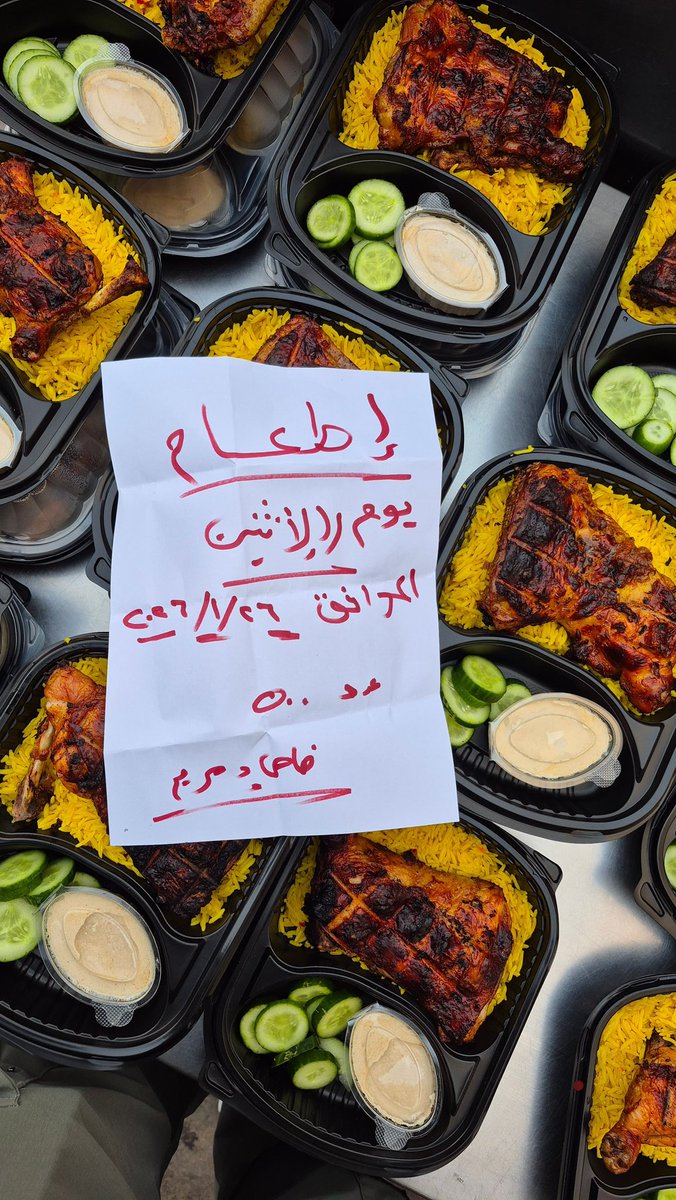 إطعام
يوم الإثنين
الموافق ٢٠٢٦/١/٢٦
عدد ٥٠٠
مريم